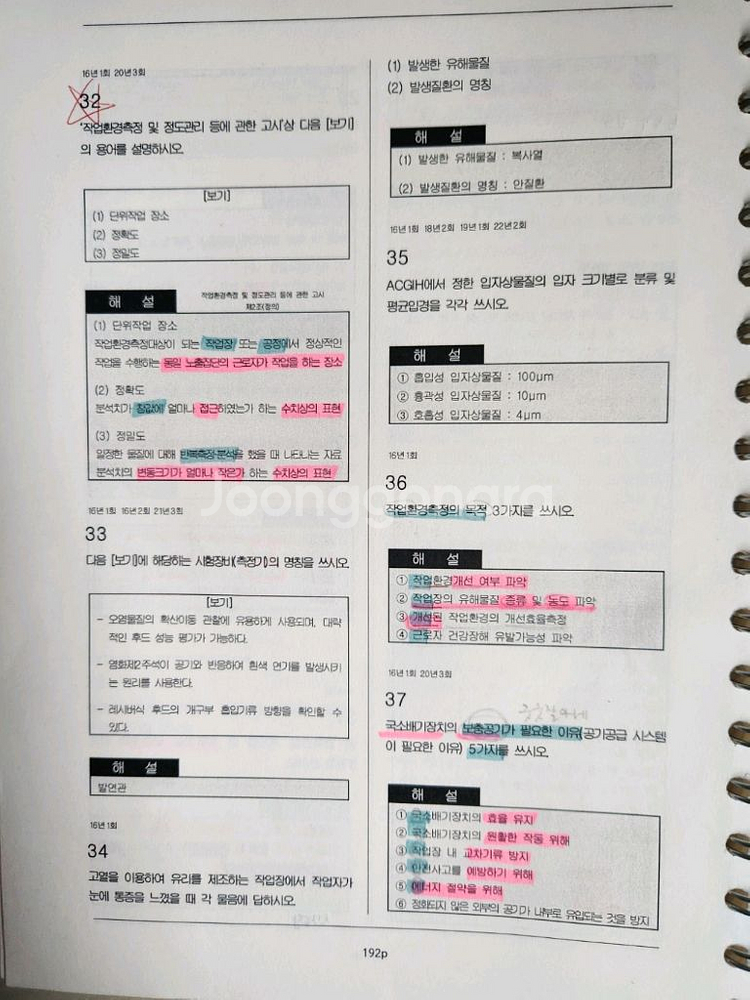 16년1회 20년3회
32
'작업환경측정 및 정도관리 등에 관한 고시'상 다음 [보기]
의 용어를 설명하시오.
[보기]
(1) 단위작업 장소
(2) 정확도
(3) 정밀도
해 설
작업환경측정 및 정도관리 등에 관한 고시
제2조(정의)
(1) 단위작업 장소
작업환경측정대상이 되는 작업장 또는 공정에서 정상적인
작업을 수행하는 동일 노출집단의 근로자가 작업을 하는 장소
(2) 정확도
분석치가 참값에 얼마나 접근하였는가 하는 수치상의 표현
(3) 정밀도
일정한 물질에 대해 반복측정·분석을 했을 때 나타나는 자료
분석치의 변동크기가 얼마나 작은가 하는 수치상의 표현
16년1회 16년2회 21년3회
33
다음 [보기]에 해당하는 시험장비(측정기)의 명칭을 쓰시오.
[보기]
- 오염물질의 확산이동 관찰에 유용하게 사용되며, 대략
적인 후드 성능 평가가 가능하다.
- 염화제2주석이 공기와 반응하여 흰색 연기를 발생시키
는 원리를 사용한다.
- 레시버식 후드의 개구부 흡입기류 방향을 확인할 수
있다.
해 설
발연관
16년1회
34
고열을 이용하여 유리를 제조하는 작업장에서 작업자가
눈에 통증을 느꼈을 때 각 물음에 답하시오.
(1) 발생한 유해물질
(2) 발생질환의 명칭
해 설
(1) 발생한 유해물질 : 복사열
(2) 발생질환의 명칭 : 안질환
16년1회 18년2회 19년1회 22년2회
35
ACGIH에서 정한 입자상물질의 입자 크기별로 분류 및
평균입경을 각각 쓰시오.
해 설
① 흡입성 입자상물질 : 100μm
② 흉곽성 입자상물질 : 10μm
③ 호흡성 입자상물질 : 4μm
16년1회
36
작업환경측정의 목적 3가지를 쓰시오.
해 설
① 작업환경개선 여부 파악
② 작업장의 유해물질 종류 및 농도 파악
③ 개선된 작업환경의 개선효율측정
④ 근로자 건강장해 유발가능성 파악
16년1회 20년3회
37
국소배기장치의 보충공기가 필요한 이유(공기공급 시스템
이 필요한 이유) 5가지를 쓰시오.
해 설
① 국소배기장치의 효율 유지
② 국소배기장치의 원활한 작동 위해
③ 작업장 내 교차기류 방지
④ 안전사고를 예방하기 위해
⑤ 에너지 절약을 위해
⑥ 정화되지 않은 외부의 공기가 내부로 유입되는 것을 방지
192p
Joonggonara